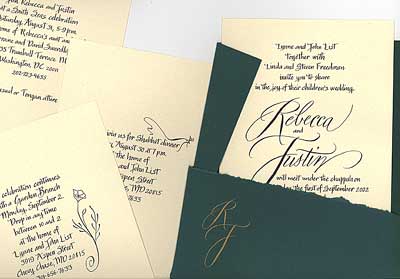 Rebecca and Justin
at a South Seas celebration
Saturday, August 31, 5-9pm
the home of Rebecca's aunt and
and David
Trumbull Terrace
Washington, DC 20011
202-723-9655
or Tongan attire
join us for Shabbat dinner
August 30 at 7 p.m.
the home of
Lynne and John List
Aspen Street
Chevy Chase, MD 20815
celebration continues
with a Garden Brunch
Monday, September 2
Drop in any time
between 10 and 2
at the home of
Lynne and John List
3019 Aspen Street
Chevy Chase, MD 20815
656-7653
Lynne and John List
Together with
Linda and Steven Freedman
invite you to share
in the joy of their children's wedding
Rebecca
and
Justin
will meet under the chuppah on
the first of September 2002
R
J